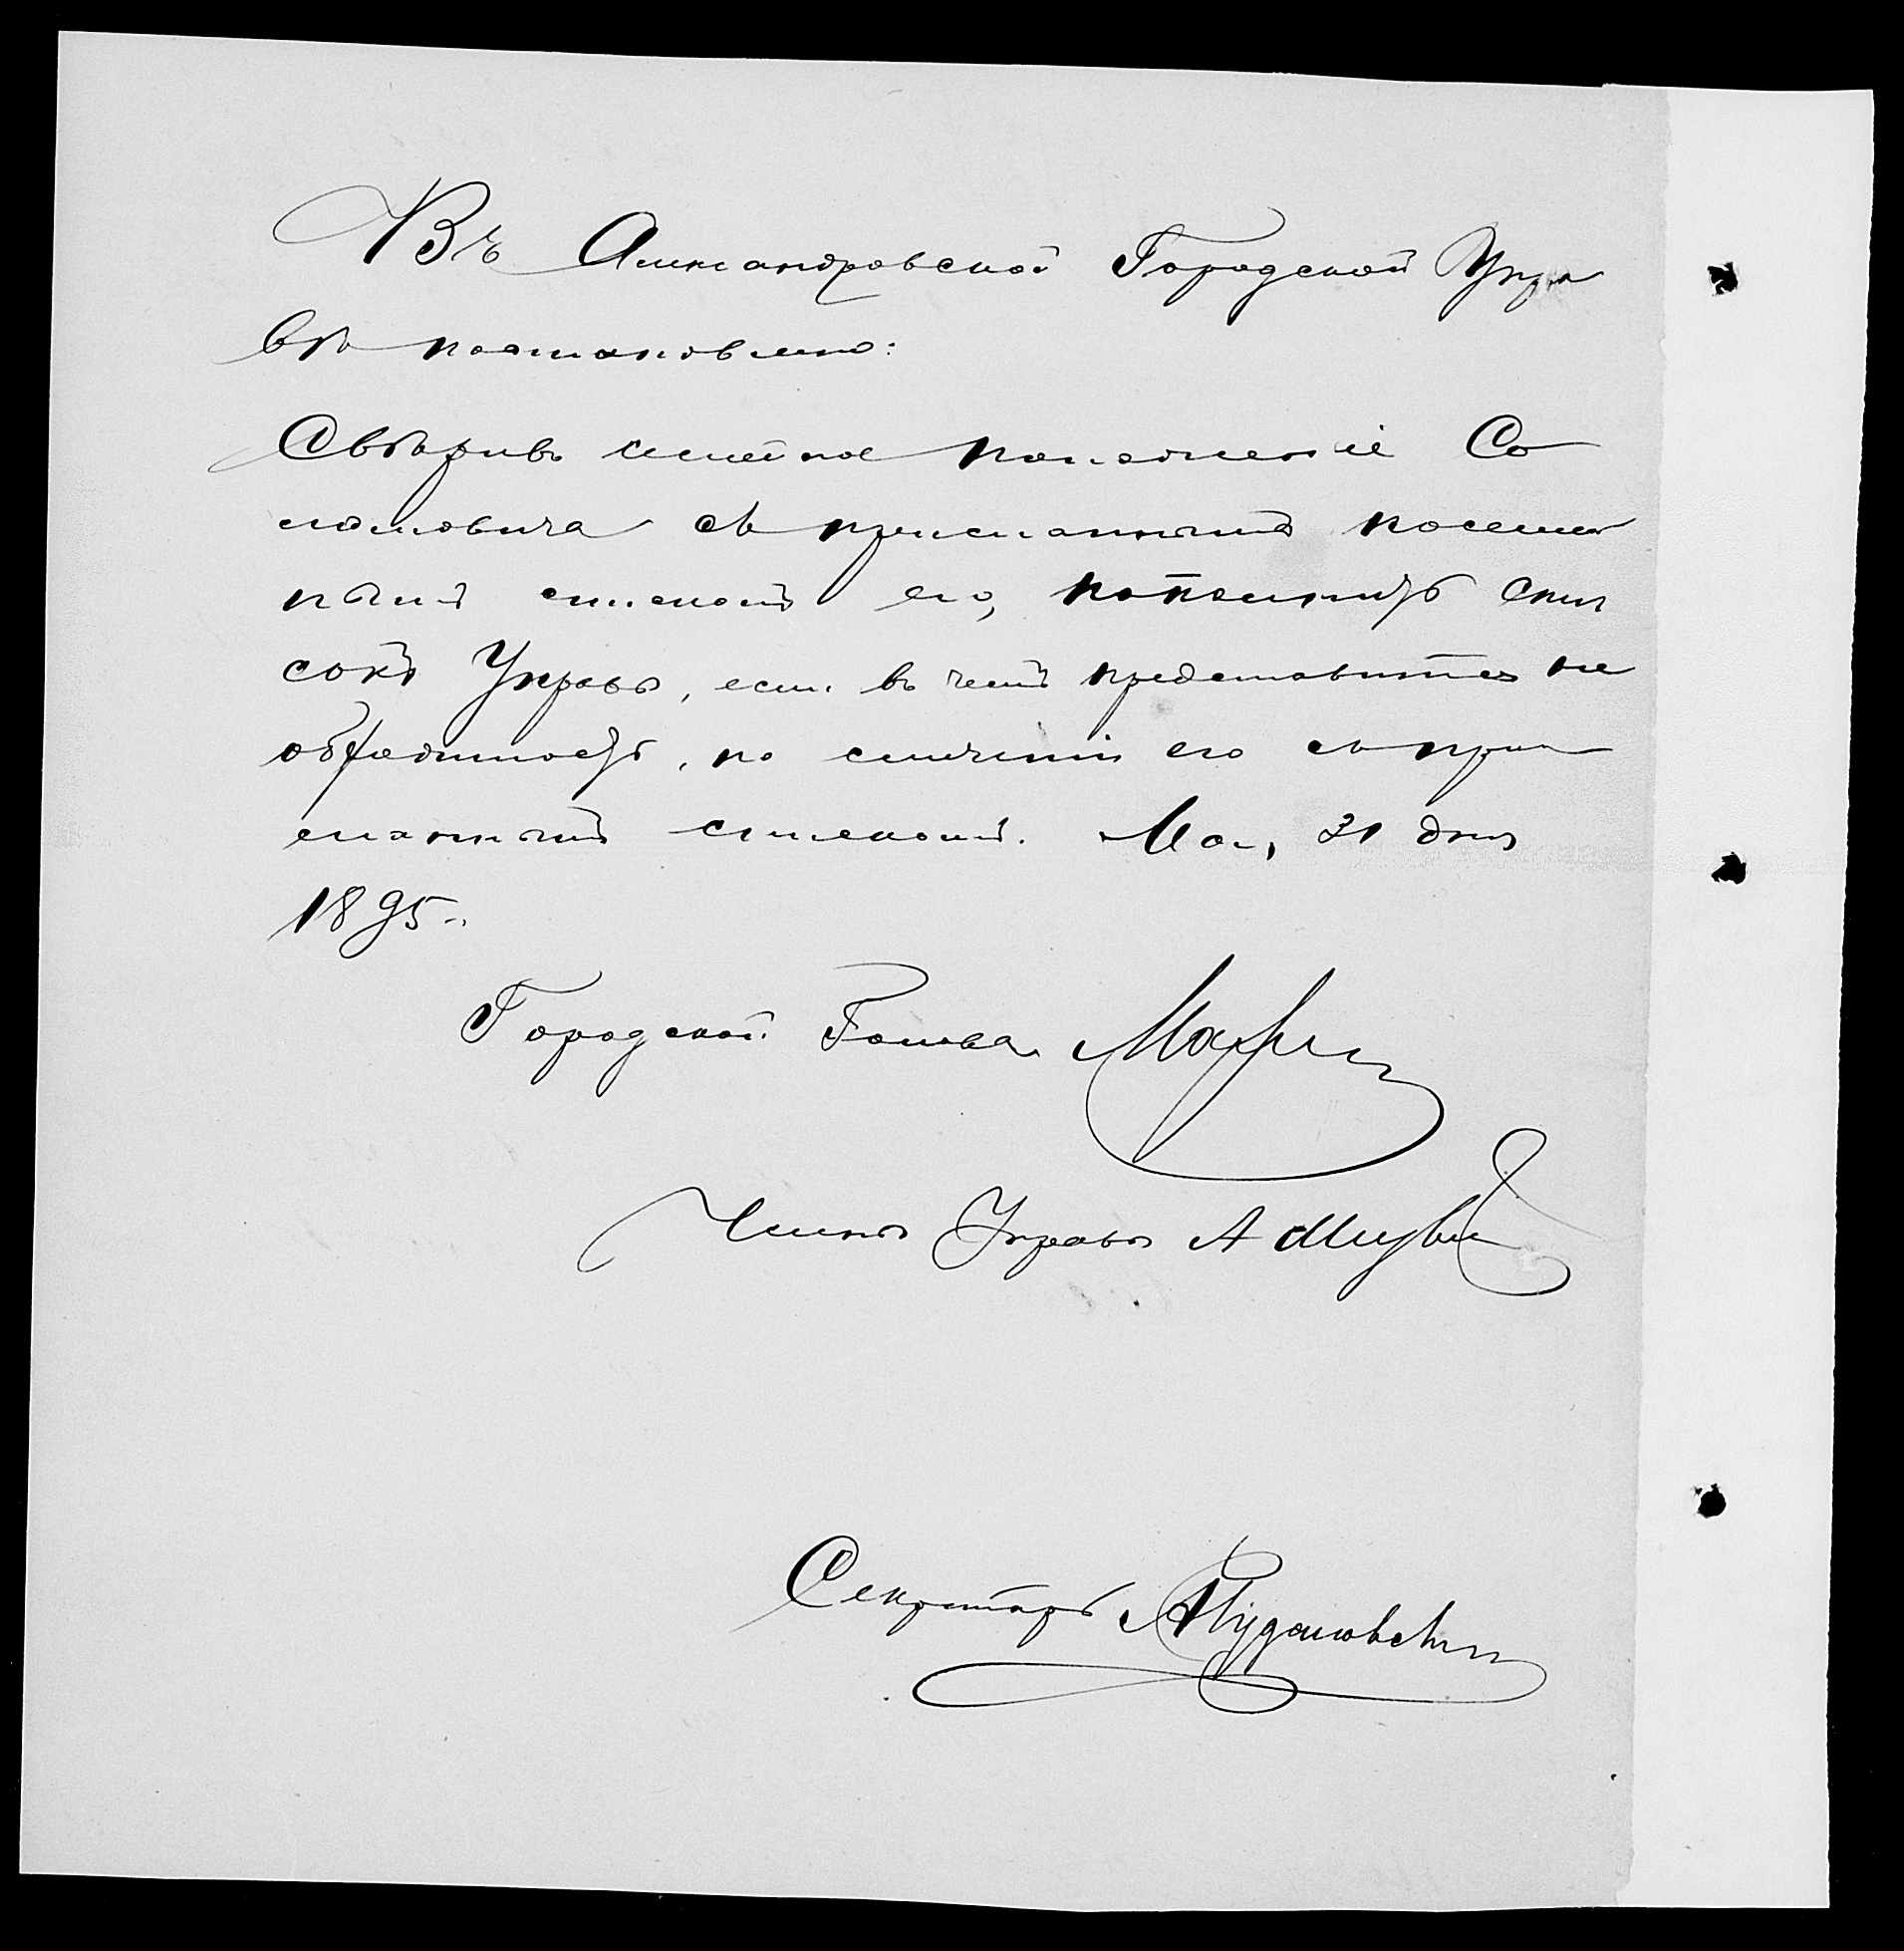 Въ Александровской Городской Упра
вѣ постановлено:
Свѣривъ семейное положеніе Со
ломовича съ присланнымъ посемей
нымъ спискомъ его, пополнить спи
сокъ Управы, если въ чемъ представится не
обходимость, по сличеніи его съ при
сланнымъ спискомъ. Мая, 31 дня
1895 г.
Городской Голова
Членъ Управы А
Секретарь